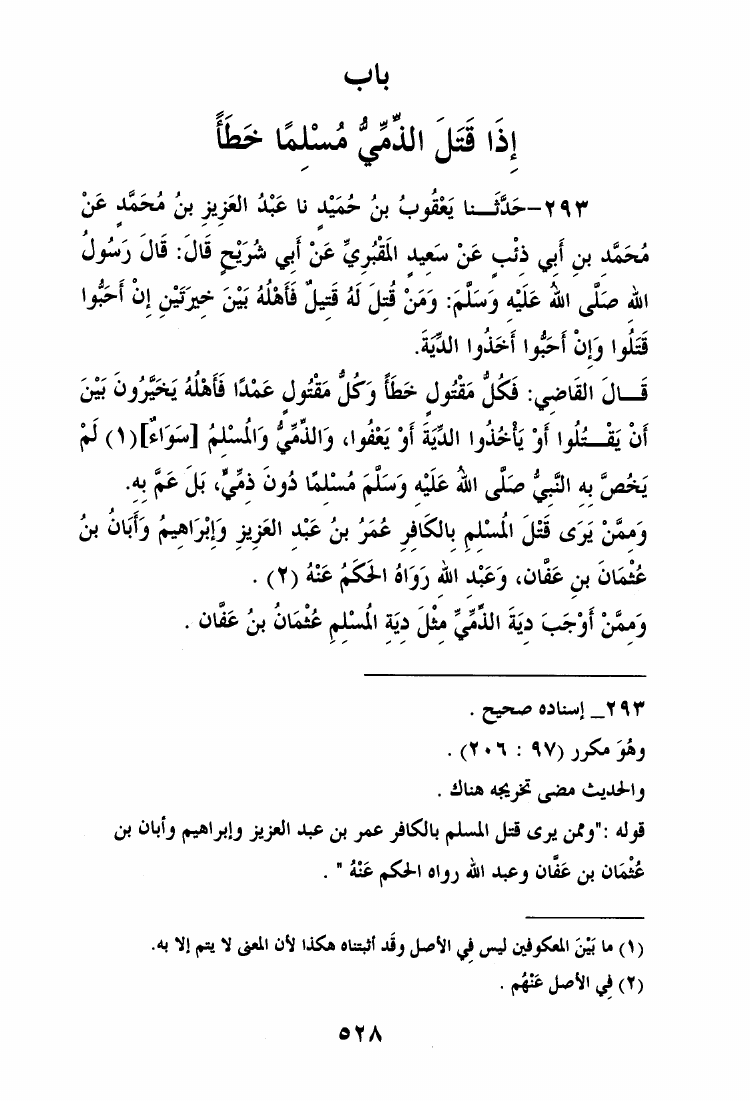 باب
إِذَا قَتَلَ الذِّمِّيُّ مُسْلِمًا خَطَأً
٢٩٣-حَدَّثَــنا يَعْقُوبُ بنُ حُمَيْدٍ نا عَبْدُ العَزِيزِ بنُ مُحَمَّدٍ عَنْ
مُحَمَّدِ بنِ أَبي ذئْبٍ عَنْ سَعيدٍ المَقْبُرِيِّ عَنْ أَبي شُرَيْحٍ قَالَ: قَالَ رَسُولُ
الله صَلَّى اللهُ عَلَيْهِ وَسَلَّمَ: وَمَنْ قُتِلَ لَهُ قَتِيلٌ فَأَهْلُهُ بَيْنَ خِيرَتَيْنِ إِنْ أَحَبُّوا
قَتَلُوا وَإِنْ أَحَبُّوا أَخَذُوا الدِّيَةَ.
قَــالَ القَاضِي: فَكُلُّ مَقْتُولٍ خَطَأً وَكُلُّ مَقْتُولٍ عَمْدًا فَأَهْلُهُ يَخَيَّرُونَ بَيْنَ
أَنْ يَقْــتُلُوا أَوْ يَأْخُذُوا الدِّيَةَ أَوْ يَعْفُوا، وَالذِّمِّيُّ وَالمُسْلِمُ [سَوَاءٌ](١) لَمْ
يَخُصَّ بِهِ النَّبيُّ صَلَّى اللهُ عَلَيْهِ وَسَلَّمَ مُسْلِمًا دُونَ ذِمِّيٍّ، بَلْ عَمَّ بِهِ.
وَمِمَّنْ يَرَى قَتْلَ المُسْلِمِ بِالكَافِرِ عُمَرُ بنُ عَبْدِ العَزيزِ وَإِبْرَاهِيمُ وَأَبَانُ بنُ
عُثْمَانَ بنِ عَفَّان، وَعَبْدِ اللهِ رَوَاهُ الحَكَمُ عَنْهُ (٢) .
وَمِمَّنْ أَوْجَبَ دِيَةَ الذِّمِّيِّ مِثْلَ دِيَةِ المُسْلِمِ عُثْمَانُ بنُ عَفَّان .
٢٩٣_ إسناده صحيح .
وهُوَ مكرر (٩٧ : ٢٠٦) .
والحديث مضى تخريجه هناك .
قوله :"وممن يرى قتل المسلم بالكافر عمر بن عبد العزيز وإبراهيم وأبان بن
عُثْمَان بن عَفَّان وعبد الله رواه الحكم عَنْهُ " .
(١) ما بَيْنَ المعكوفين ليس فِي الأصل وقَد أثبتناه هكذا لأن المعنى لا يتم إلا به.
(٢) فِي الأصل عَنْهُم .
٥٢٨